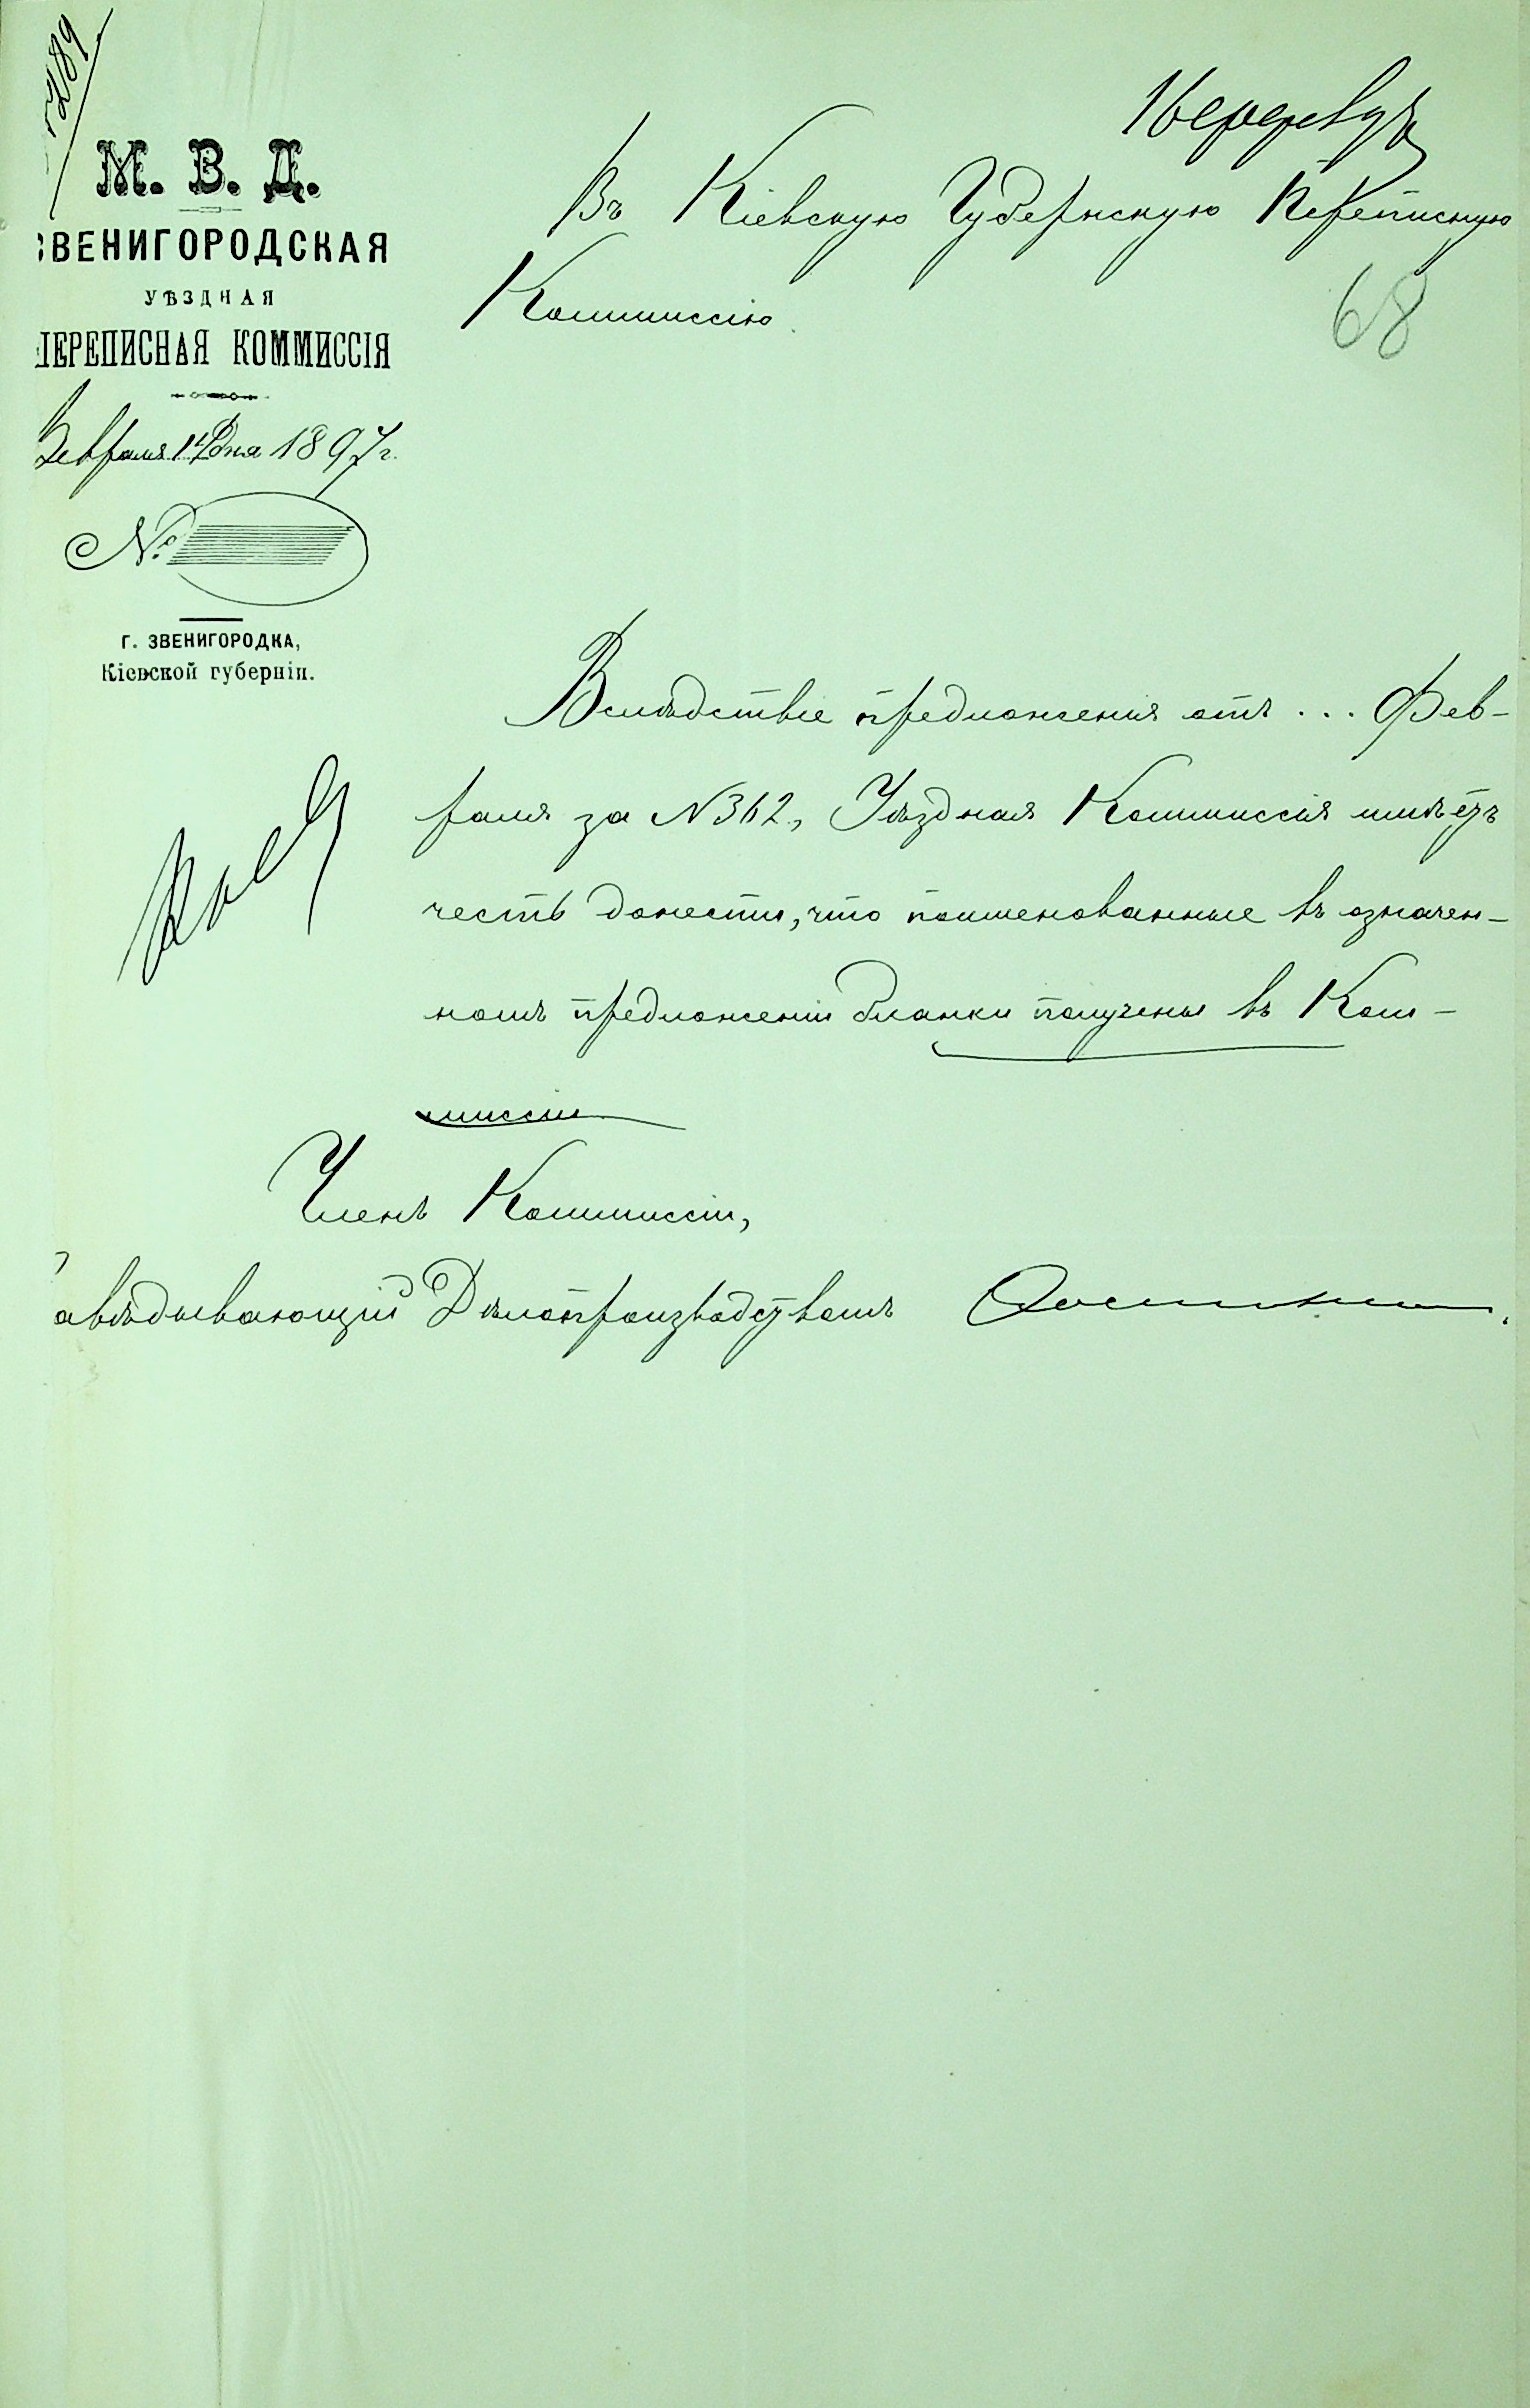 289
М. В. Д.
ЗВЕНИГОРОДСКАЯ
УѢЗДНАЯ
ПЕРЕПИСНАЯ КОММИССІЯ
Февраля дня 1897 г.
№
Г. ЗВЕНИГОРОДКА,
Кіевской губерніи.
Въ Кіевскую Губернскую Переписную
Коммиссію
68
Вслѣдствіе предложенія отъ ... Фев-
раля за N 362, Уѣздная Коммиссія имѣетъ
честь донести, что поименованные въ означен-
номъ предложеніи бланки получены въ Ком-
миссіи
Членъ Коммиссіи,
Завѣдывающій Дѣлопроизводствомъ